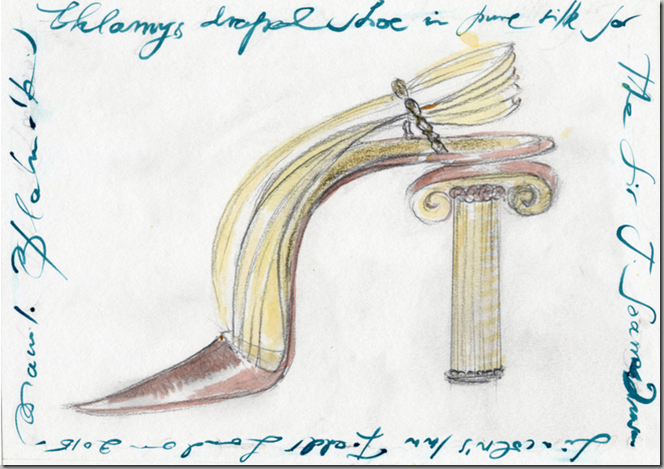 Chlamys draped shoe in pure silk for
The Sir J. Soames
Lincoln's Inn Fields London 2015.
Blahnik